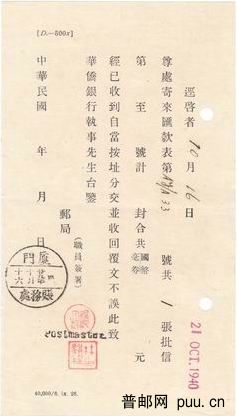 [D.—500x]
逕啓者 10月16日
尊處寄來匯款表第 33 號共 1 張批信
第 至 號計 封合共 國幣毫券 元
經已收到自當按址分交並收回覆文不誤此致
華僑銀行執事先生台鑒
郵局
(職員簽署)
Postmaster
中華民國 年 月 日
廈門
賬務處
21 OCT. 1940
40,000/8. ix. 28.
普邮网 puu.cn